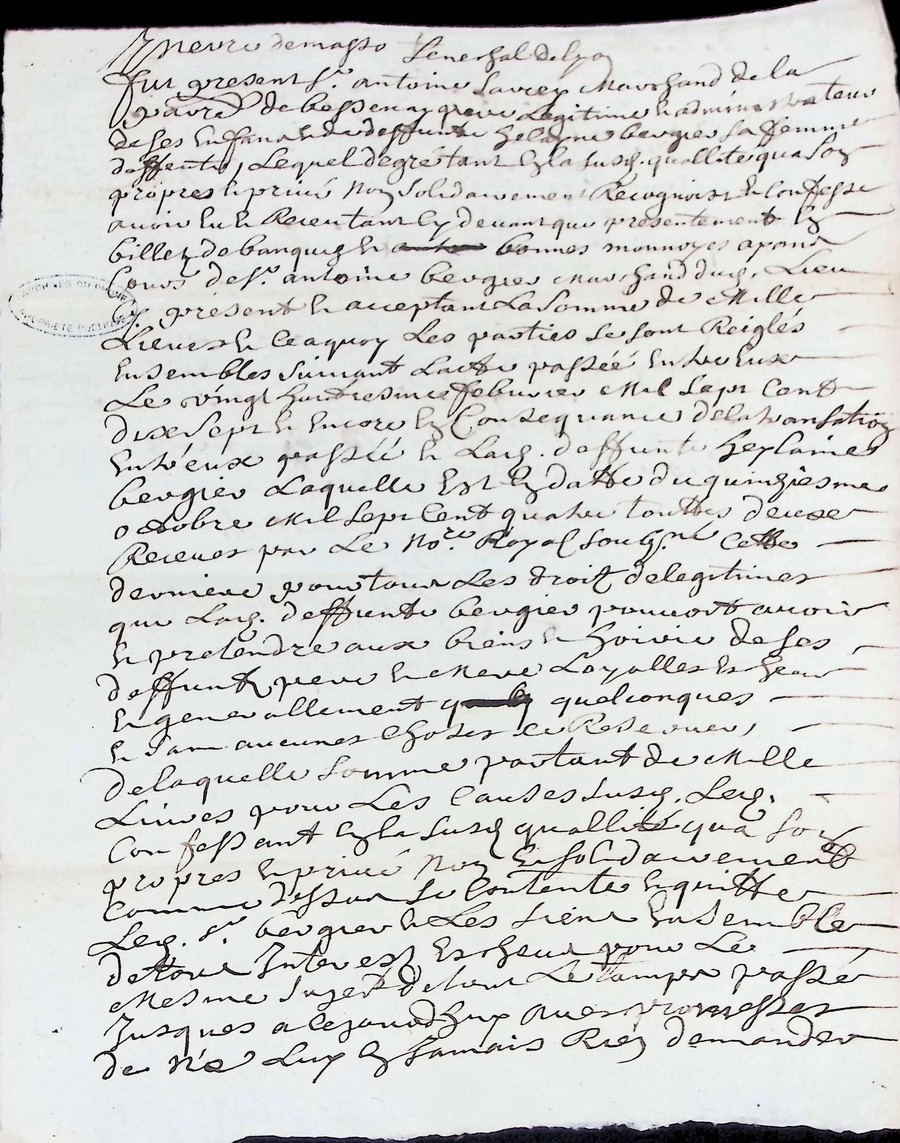 demasso Senechal de Lyon
fut present Sr. antoine Marchand de la
parre de bessenay pere Legitime & administrateur
de ses Enfans & de deffunte heleyne bergier sa femme
deffente, Lequel de gré tant En la susd. quallité qua son
propres & privé Nom solidairement Recognoist & Confesse
avoir Eu & Receu tant Cy devant que presentement En
billetz de banque & bonnes monnoyes ayant
Cours de Sr. antoine bergier Marchand dud. Lieu
Cy present & acceptant La somme de Mille
Livres & Ce a quoy Les parties se sont Reiglés
Ensembles suivant Lacte passéé Entre Eux
Le vingt huitiesme febvrier Mil sept Cent
dixsept & Encore En Consequance de la transation
Entreux passéé & Lad. deffunte heylaine
bergier Laquelle Est En datte du quinziesme
octobre Mil sept Cent quatre touttes deux
Receues par Le Nore. Royal soubs.né Cette
derniere pour tous Les droitz de legitimes
que Lad. deffunte bergier pouvoit avoir
& pretendre aux biens & hoirie de ses
deffuntz pere & Mere Loyalles
& generallement quelconques
& sans aucunes Choses se Reserver,
de laquelle somme partant de Mille
Livres pour Les Causes susd. Led.
Confessant En la susd quallité qua son
propres & privé Nom & solidairement
Comme dessus se Contente & quitte
Led. Sr. bergier & Les siens Ensemble
de tous Interestz Escheus pour Le
Mesme sujet de tout Le tamps passé
Jusques a Cejourdhuy avec promesses
de Ne Luy En Jamais Rien demander